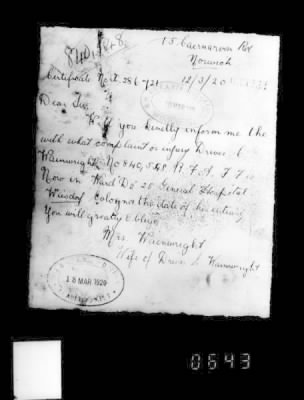 840548
15 Caernarvon Rd
Norwich
Certificate No 12/3/20
Dear Sir,
Will you kindly inform me the
with what complaint or injury Driver L
Wainwright No 840,548 R. F. A. T F is
Now in Ward D5 25 General Hospital
Cologne the date of his
You will greatly oblige
Mrs. Wainwright
Wife of Driver L Wainwright
18 MAR 1920
0643